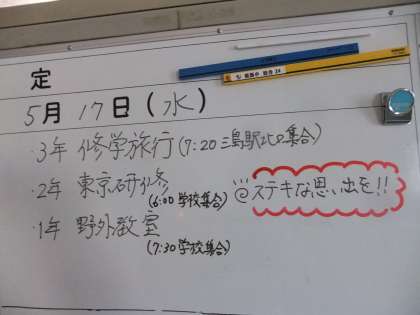 定
5月17日(水)
・3年 修学旅行(7:20 三島駅北口集合)
・2年 東京研修
(6:00 学校集合)
@ステキな思い出を!!
・1年 野外教室
(7:30 学校集合)